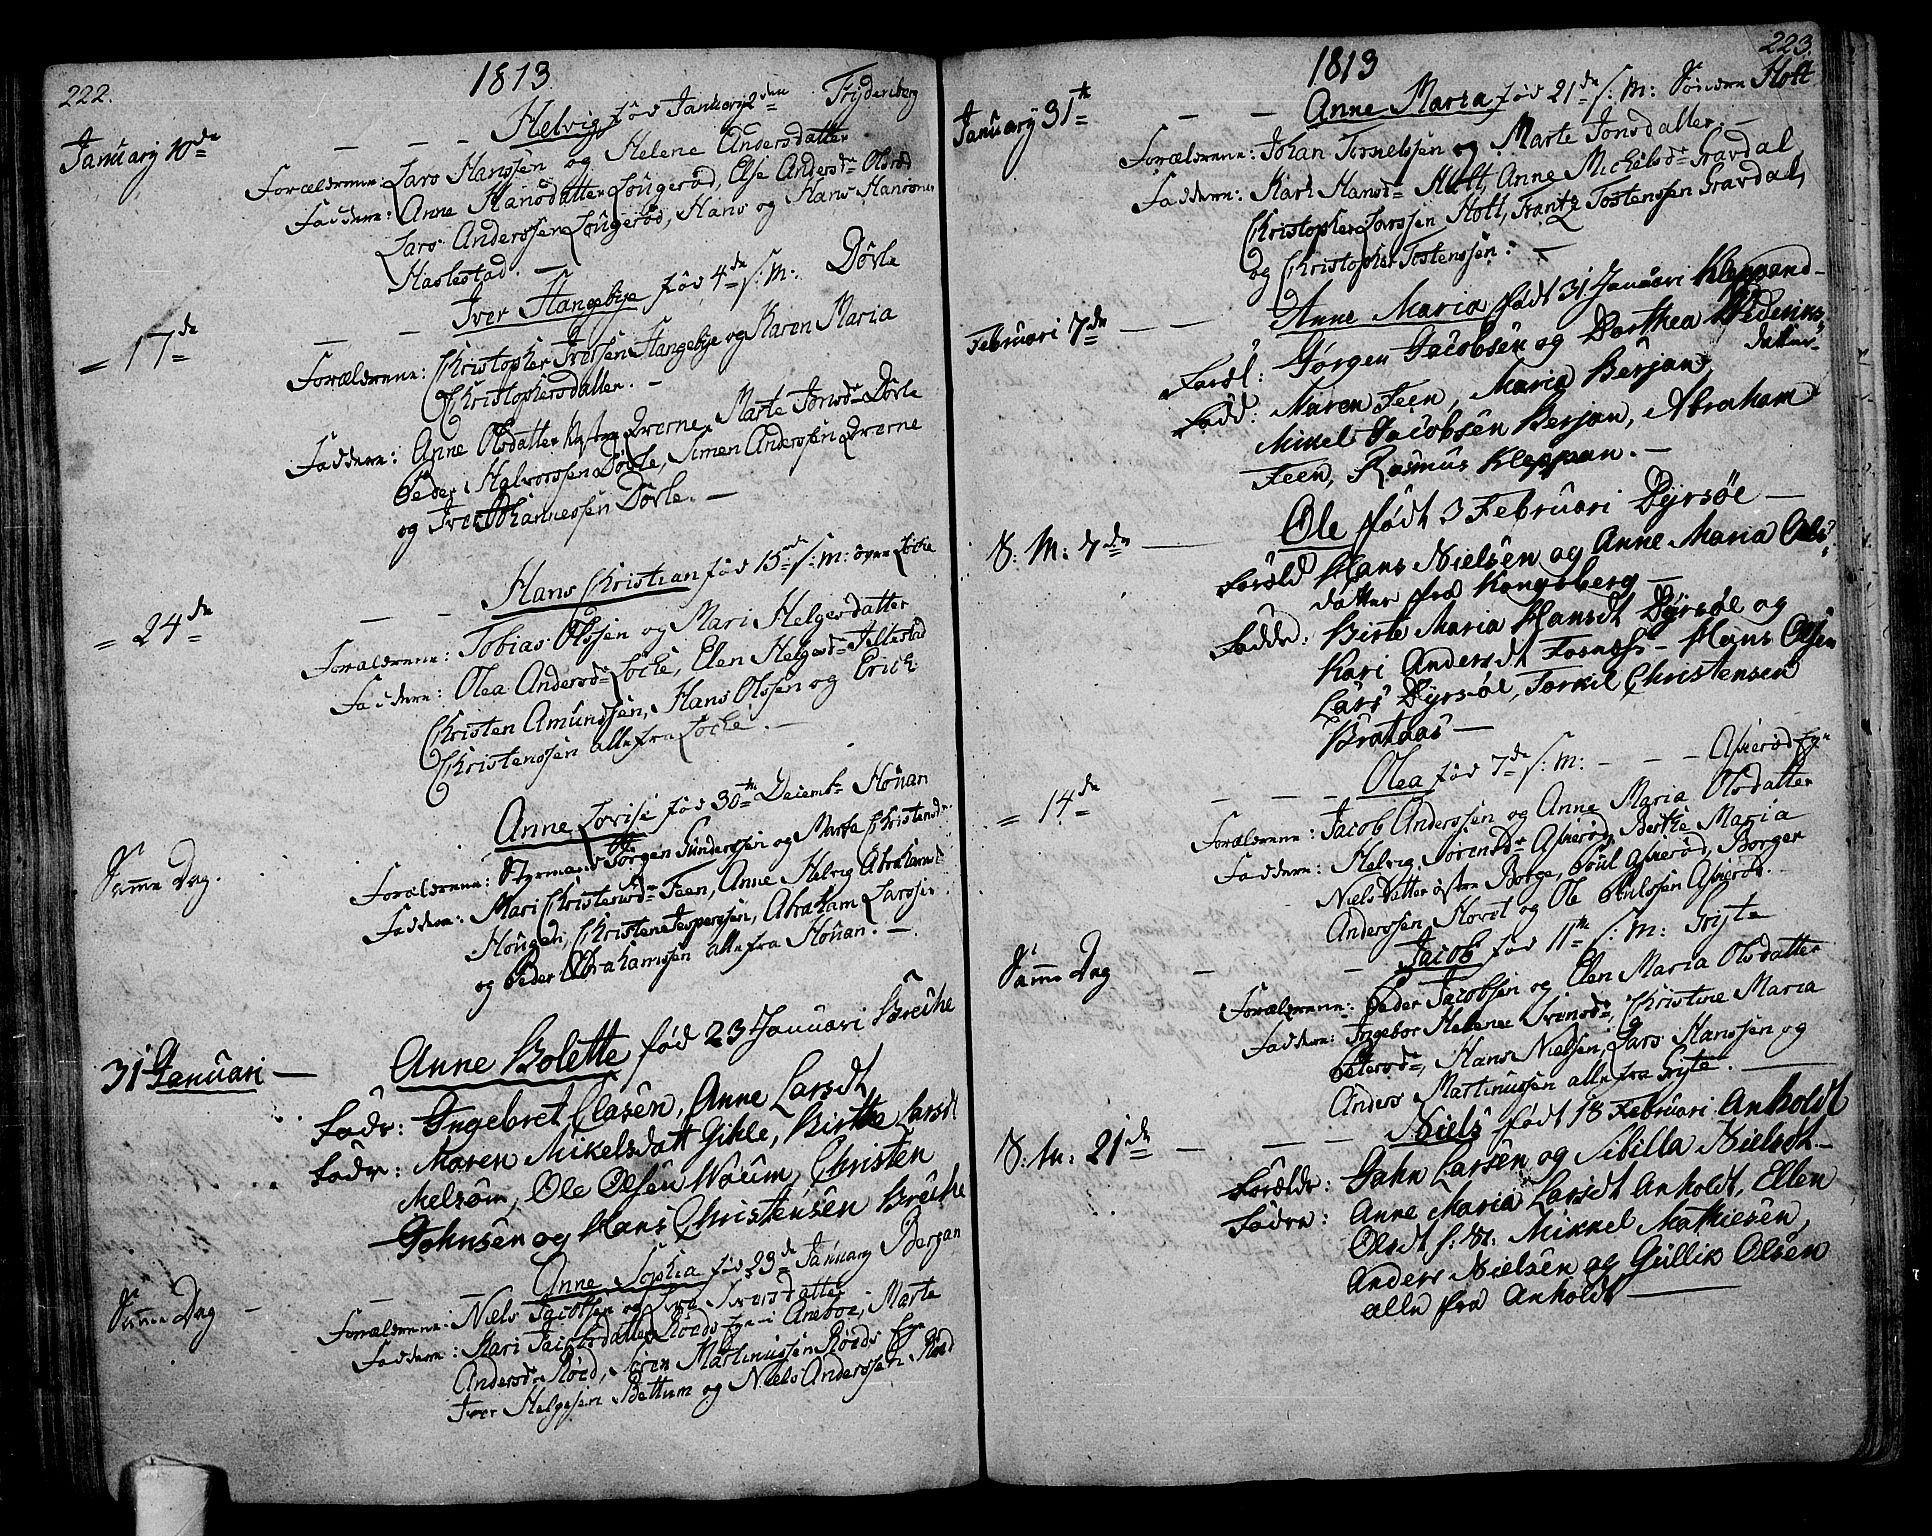 222.
1813.
January 10de
Helvig fød January 2den Frydenberg
Forældrene: Lars Hanssen og Helene Andersdatter
Faddere: Anne Hansdatter Lougerød, Else Andersdr Olsrød
Lars Anderssen Lougerød, Hans og Hans Hansøner
Haslestad. —
= 17de
Iver Hangebye fød 4de s: M: Døvle
Forældrene: Christopher Iverssen Hangebye og Karen Maria
Christophersdatter. —
Faddere: Anne Olsdatter Qværne, Marte Jonsdr Døvle
Peder Halvorssen Døvle, Simen Anderssen Qværne
og Iver Johannessen Døvle. —
= 24de
Hans Christian fød 15de s: M: øvre Locke
Forældrene: Tobias Olssen og Mari Helgesdatter
Faddere: Olea Andersdr Locke, Elen Helgesdr Jellestad
Christen Amundssen, Hans Olssen og Erich
Christenssen alle fra Locke. —
Samme Dag.
Anne Lovise fød 30te Decembr Houan
Forældrene: Styrmand Jørgen Gunderssen og Marta Christensdr
Faddere: Mari Christensdr Feen, Anne Helvig Abrahamsdr
Hougen, Christen Jesperssen, Abraham Larssen
og Peder Abrahamssen alle fra Houan. —
31 Januari —
Anne Bolette fød 23 Januari Breche
Fadr: Ingebret Clasen, Anne Larsdt
Fadr: Maren Mikelsdatt Gihle, Birthe Larsdt
Melsom, Ole Olsen Woum, Christen
Johnsen og Hans Christensen Breche
Samme Dag —
Anne Sophia fød 29de January Bergan
Forældrene: Niels Jacobssen og Eva Iversdatter
Faddere: Kari Jacobsdatter Røeds Eye i Areboe, Marte
Andersdr Røed, Søren Martinussen Røeds Eye
Iver Helgesen Bettum og Niels Anderssen Røed
223.
1813
January 31te
Anne Maria fød 21de s: M: Søndre Holt
Forældrene: Johan Torsielssen og Marte Jonsdatter. —
Faddere: Kari Hansdr Holt, Anne Michelsdr Gravdal,
Christopher Larssen Holt, Frantz Tostenssen Gravdal,
og Christopher Tostenssen: —
Februari 7de —
Anne Maria født 31 Januari Kleppand
Foræl: Jørgen Jacobsen og Dorthea Pederins
datter
Fadd: Maren Feen, Maria Berjan,
Mikkel Jacobsen Berjan, Abraham
Feen, Rasmus Kleppan. —
S: M: 7de —
Ole født 3 Februari Dyrsøe —
Foræld Hans Nielsen og Anne Maria Ols
datter fra Kongsberg —
Faddr: Birte Maria Hansdt Dyrsøe og
Kari Andersdt Fosnæss — Hans Olsen
Lars Dyrsøe, Torkil Christensen
Brataas —
= 14de
Olea fød 7de s: M: — — — Askerød Eye
Forældrene: Jacob Anderssen og Anne Maria Olsdatter
Faddere: Helvig Sørensdr Askerød, Berthe Maria
Nielsdatter østre Borge, Poul Askerød, Borger
Anderssen Horst og Ole Poulssen Askerød. —
Samme Dag
Jacob fød 11te s: M: Gryte
Forældrene: Peder Jacobssen og Elen Maria Olsdatter
Faddere: Ingebor Helene Svensdr, Christine Maria
Petersdr, Hans Nielsen, Lars Hanssen og
Anders Martinussen alle fra Gryte. —
S: M: 21de —
Niels født 18 Februari Anholdt
Forældr: Jahn Larsen og Sibilla Nielsdt —
Faddre: Anne Maria Larsdt Anholdt, Ellen
Olsdt s: st: Mikkel Mathiesen,
Anders Nielsen og Gullik Olsen
alle fra Anholdt —